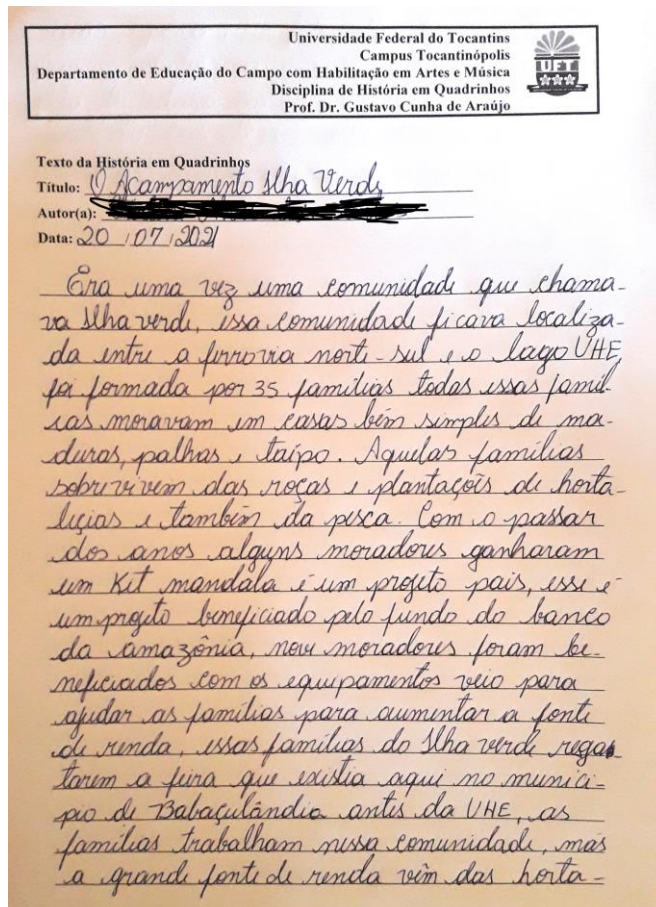 Universidade Federal do Tocantins
Campus Tocantinópolis
Departamento de Educação do Campo com Habilitação em Artes e Música
Disciplina de História em Quadrinhos
Prof. Dr. Gustavo Cunha de Araújo
UFT
Texto da História em Quadrinhos
Título: O Acampamento Ilha Verde
Autor(a):
Data: 20/07/2021
Era uma vez uma comunidade que chama-
va Ilha verde, essa comunidade ficava localiza-
da entre a ferrovia norte-sul e o lago UHE,
foi formada por 35 famílias todas essas famíl-
ias moravam em casas bem simples de ma-
deiras, palhas e taipo. Aquelas famílias
sobrevivem das roças e plantações de horta-
liçias e também da pesca. Com o passar
dos anos alguns moradores ganharam
um Kit mandala é um projeto pais, esse é
um projeto beneficiado pelo fundo do banco
da amazônia, nove moradores foram be-
neficiados com os equipamentos veio para
ajudar as famílias para aumentar a fonte
de renda, essas famílias do Ilha verde regas
tarem a feira que existia aqui no municí-
pio de Babaçulândia antes da UHE, as
famílias trabalham nessa comunidade, mas
a grande fonte de renda vêm das horta-